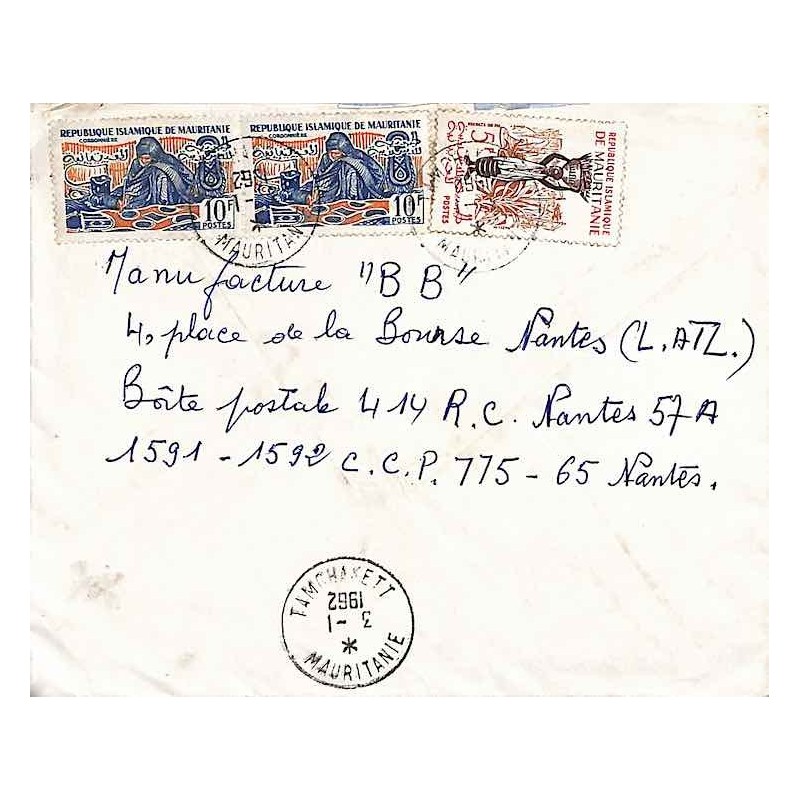 REPUBLIQUE ISLAMIQUE DE MAURITANIE
CORDONNIÈRE
10F
POSTES
REPUBLIQUE ISLAMIQUE DE MAURITANIE
CORDONNIÈRE
10F
POSTES
REPUBLIQUE ISLAMIQUE
DE MAURITANIE
POSTES
1962
MAURITANIE
Manufacture "BB"
4, place de la Bourse Nantes (L.ATL.)
Boîte postale 414 R.C. Nantes 57A
1591-1592 C.C.P. 775-65 Nantes.
TAMCHAKETT
1962
MAURITANIE